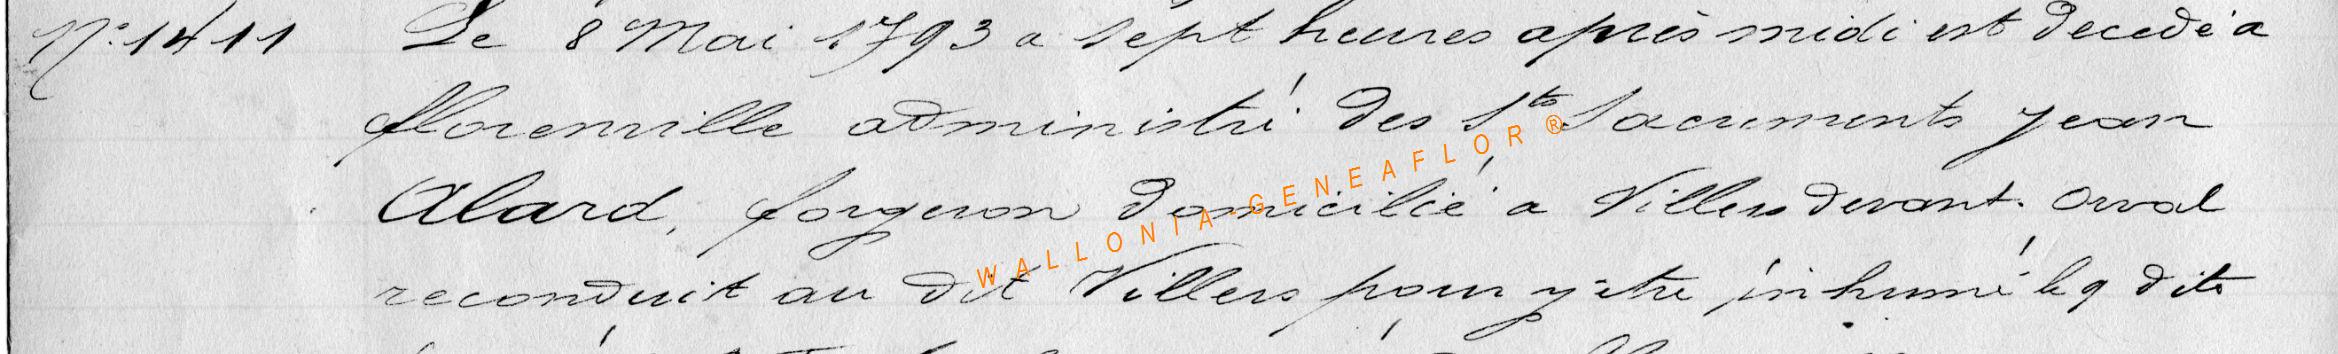 N° 1411 Le 8 Mai 1793 a sept heures après midi est decedé a
florenville administré des Sts Sacrements jean
Alard, forgeron domicilié a Villers devant. Orval
reconduit au dit Villers pour y être inhumé le 9 dito
WALLONIA-GENEAFLOR®